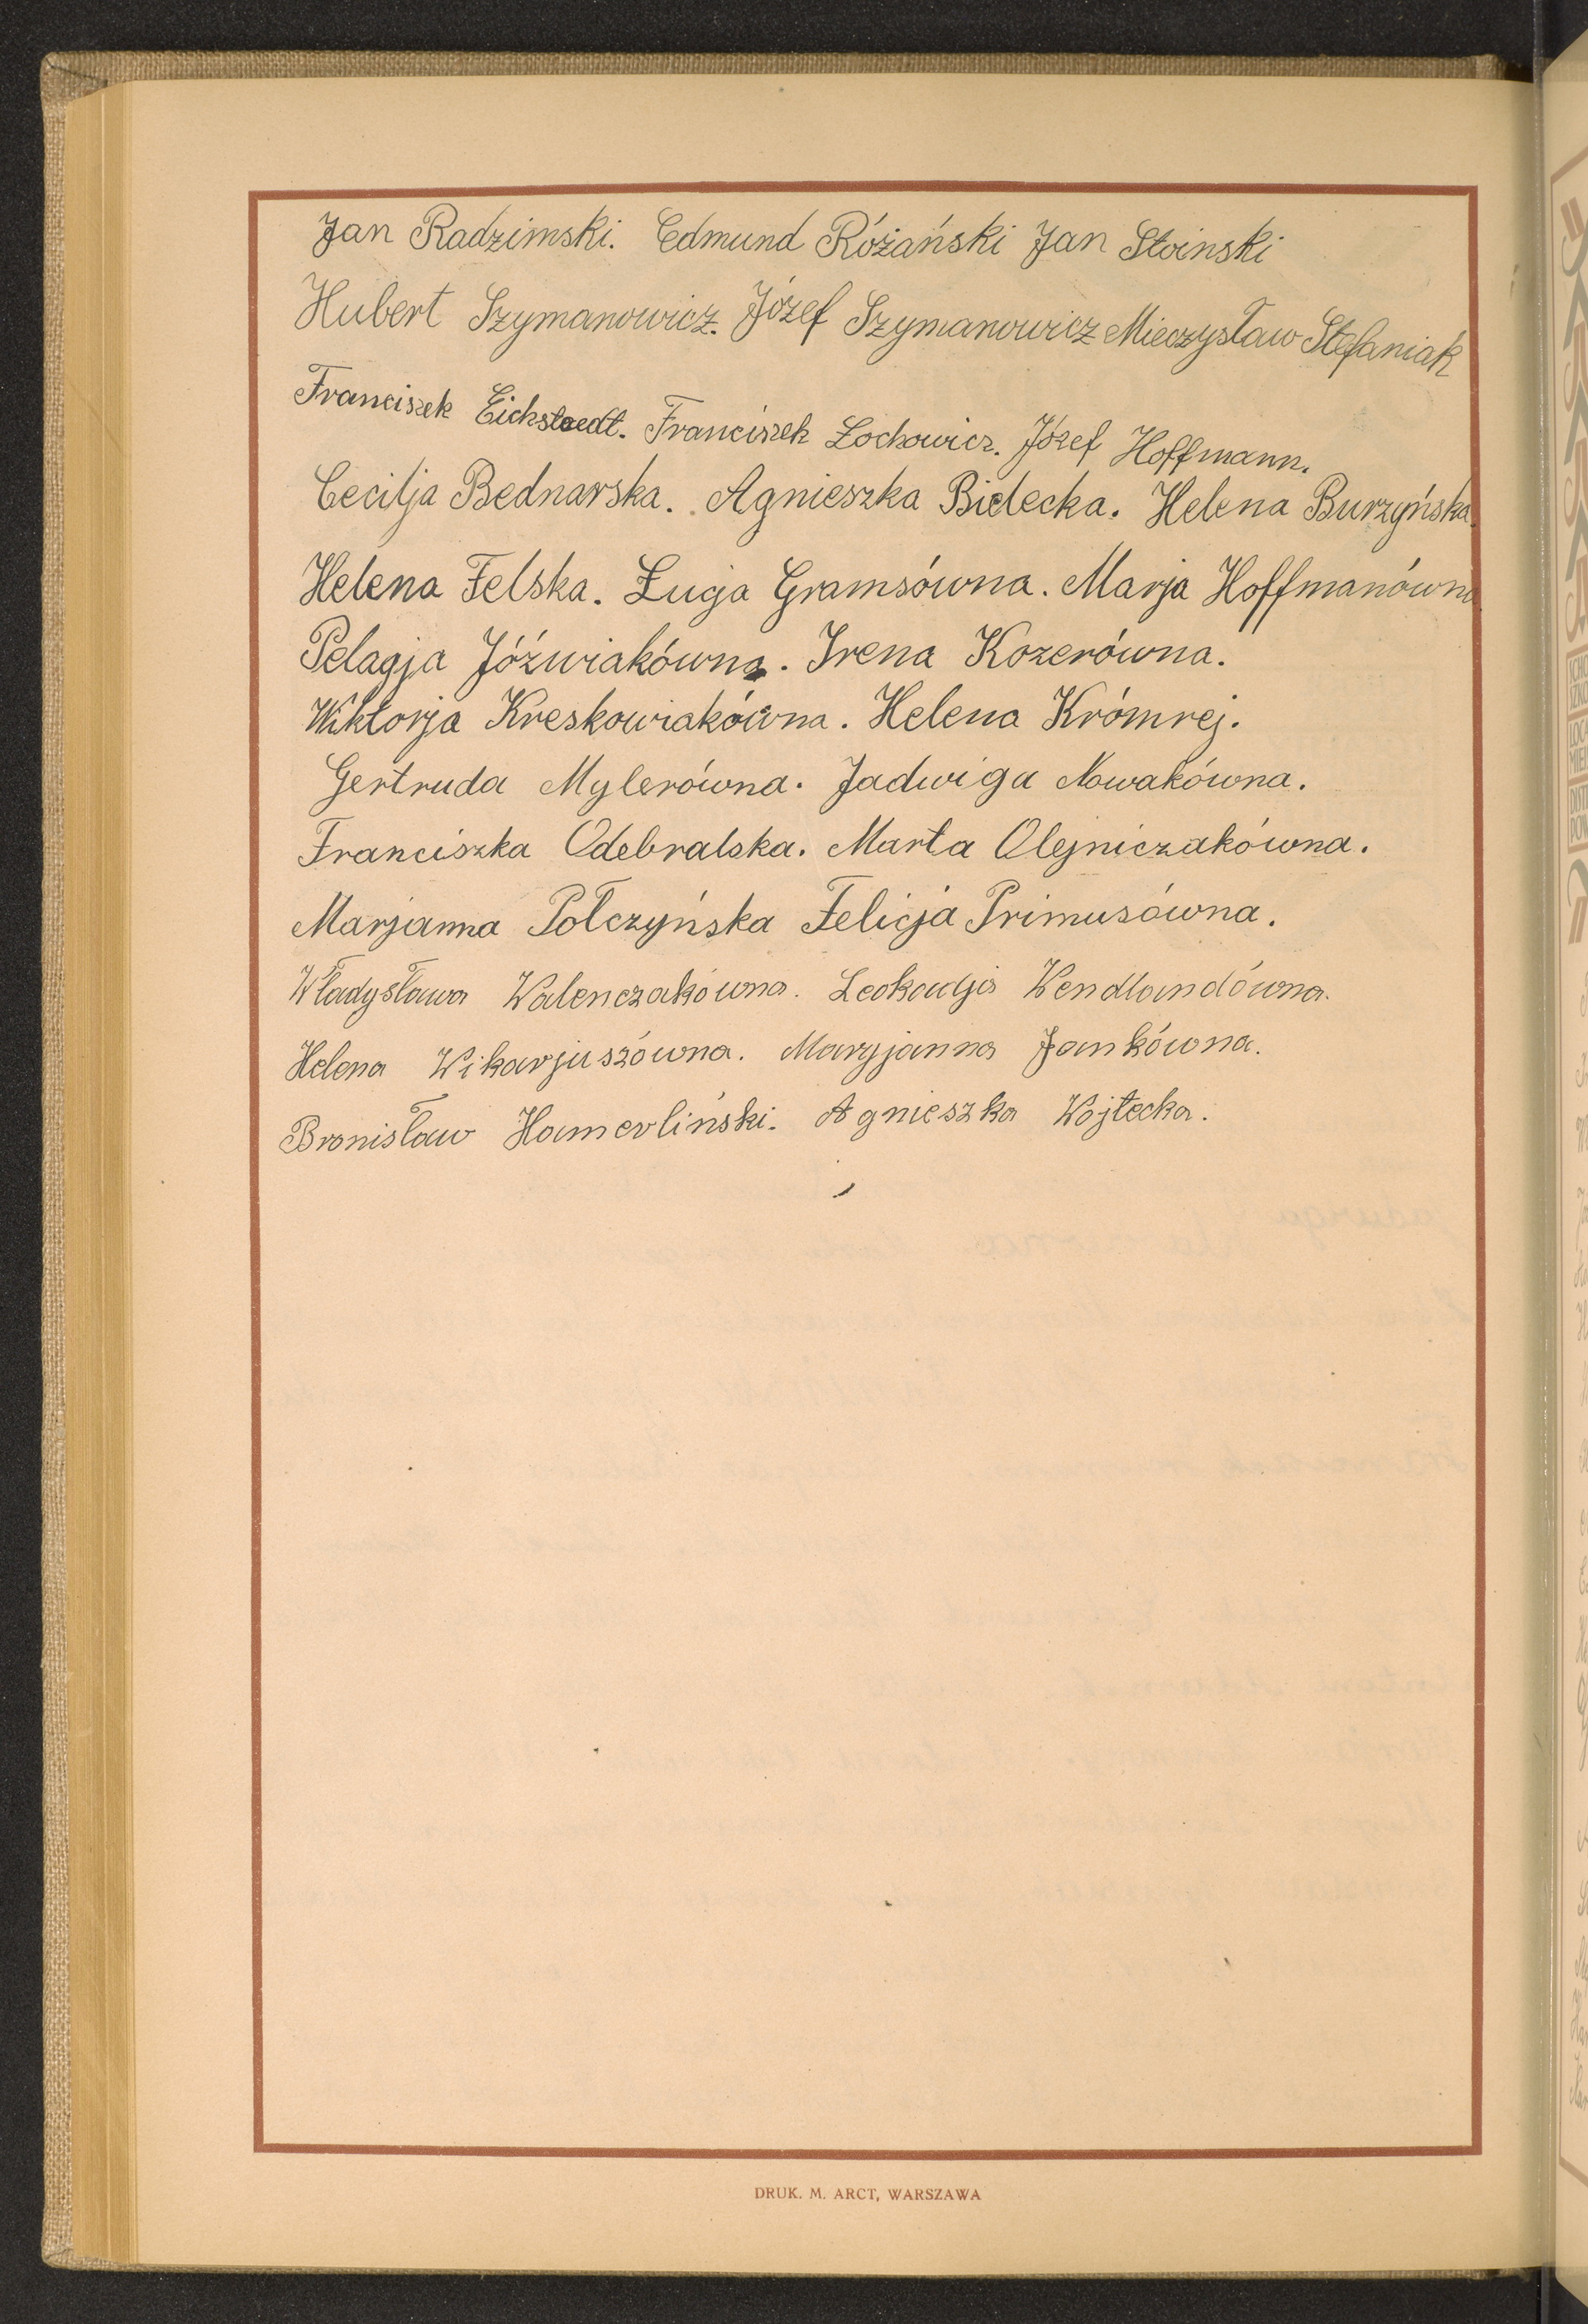 Jan Radzimski. Edmund Różański Jan Stoinski
Hubert Szymanowicz. Józef Szymanowicz Mieczysław Stefaniak
Franciszek Eickstaedt. Franciszek Lochowicz. Józef Hoffmann.
Cecilja Bednarska. Agnieszka Bielecka. Helena Burzyńska.
Helena Felska. Łucja Gramsówna. Marja Hoffmanówna
Pelagja Jóźwiakówna. Irena Kozerówna.
Wiktorja Kreskowiakówna. Helena Krómrej.
Gertruda Mylerówna. Jadwiga Nowakówna.
Franciszka Odebralska. Marta Olejniczakówna.
Marjanna Połczyńska Felicja Primusówna.
Władysława Walenczakówna. Leokadja Wendlandówna.
Helena Wikarjuszówna. Maryjanna Jankówna.
Bronisław Hamerliński. Agnieszka Wojtecka.
DRUK. M. ARCT, WARSZAWA